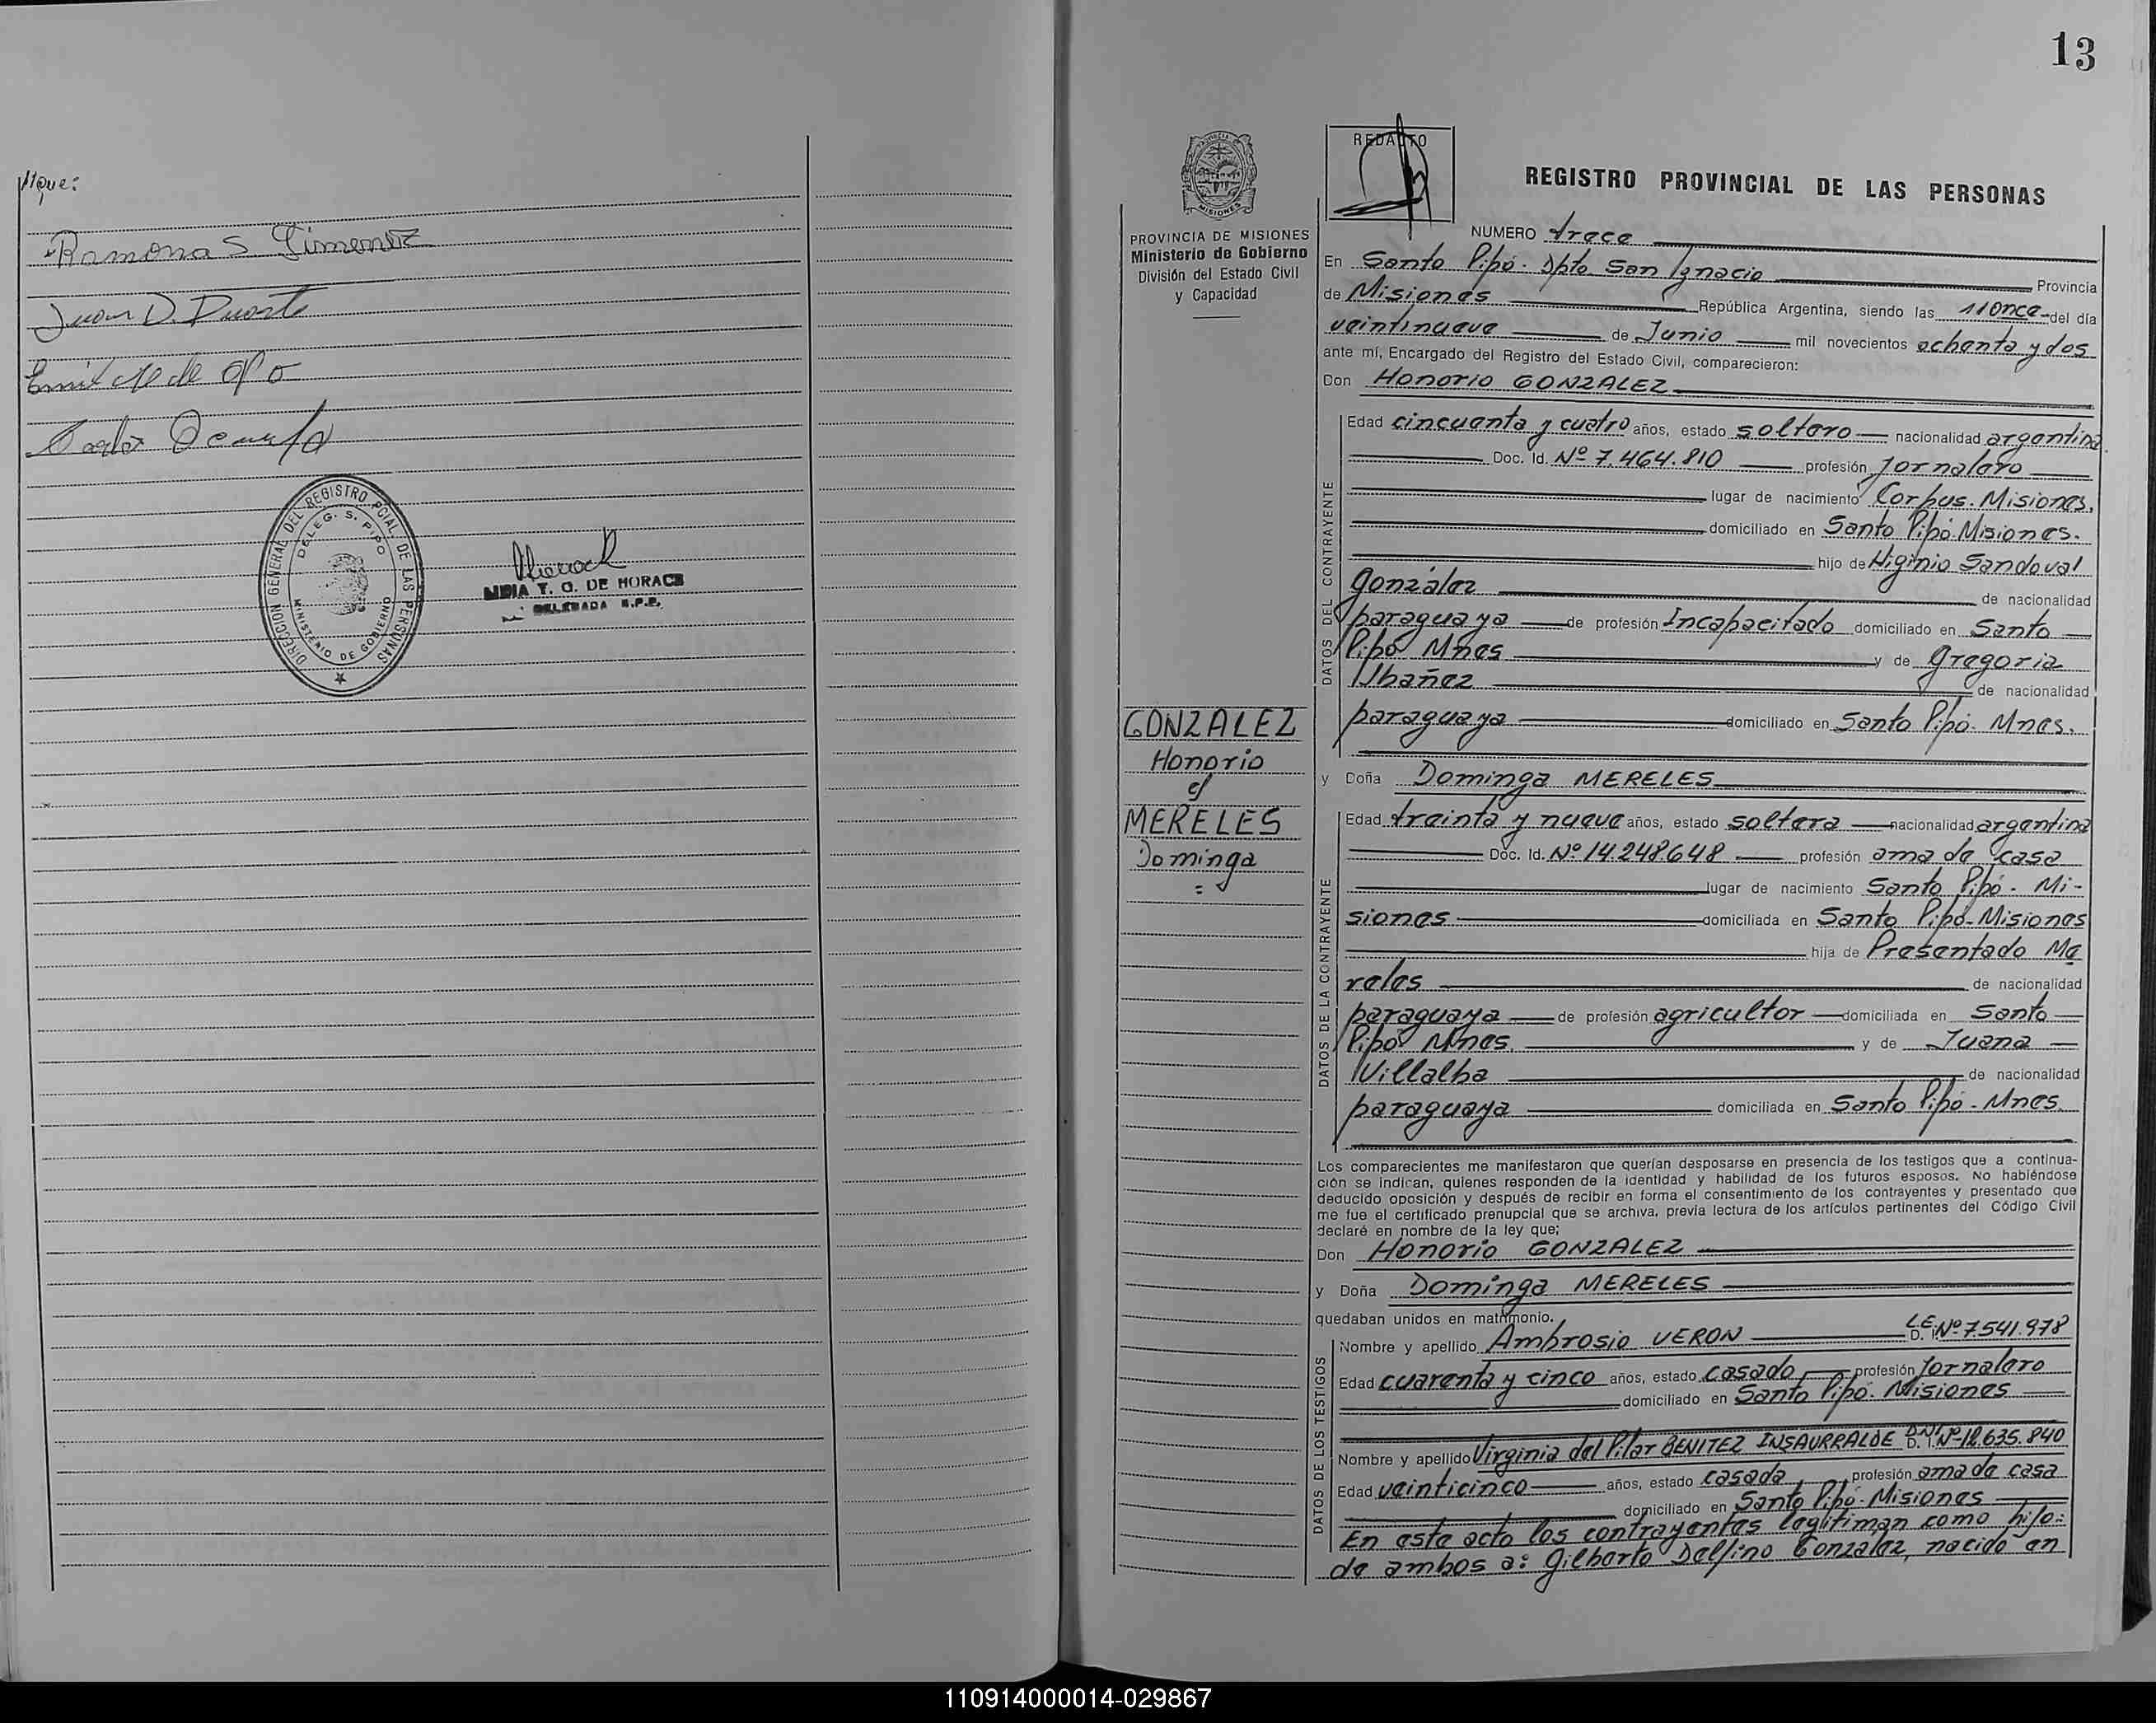 ///que:
Ramona S. Gimenez
Juan D. Duarte
DIRECCION GENERAL DEL REGISTRO PCIAL. DE LAS PERSONAS
DELEG. S. PIPO
MINISTERIO DE GOBIERNO
DE HORACK
DELEGADA R.P.P.
13
PROVINCIA DE MISIONES
Ministerio de Gobierno
División del Estado Civil
y Capacidad
GONZALEZ
Honorio
c/
MERELES
Dominga
=
REDACTO
REGISTRO PROVINCIAL DE LAS PERSONAS
NUMERO trece
En Santo Pipó. Dpto San Ignacio Provincia
de Misiones República Argentina, siendo las 11 once del día
veintinueve de Junio mil novecientos ochenta y dos
ante mí, Encargado del Registro del Estado Civil, comparecieron:
Don Honorio GONZALEZ
DATOS DEL CONTRAYENTE
Edad cincuenta y cuatro años, estado soltero nacionalidad argentina
Doc. Id. Nº 7.464.810 profesión Jornalero
lugar de nacimiento Corpus. Misiones.
domiciliado en Santo Pipó. Misiones.
hijo de Higinio Sandoval
González de nacionalidad
paraguaya de profesión Incapacitado domiciliado en Santo
Pipó Mnes y de Gregoria
Ibañez de nacionalidad
paraguaya domiciliado en Santo Pipó. Mnes.
y Doña Dominga MERELES
DATOS DE LA CONTRAYENTE
Edad treinta y nueve años, estado soltera nacionalidad argentina
Doc. Id. Nº 14.248.648 profesión ama de casa
lugar de nacimiento Santo Pipó. Mi-
siones domiciliada en Santo Pipó-Misiones
hija de Presentado Me
reles de nacionalidad
paraguaya de profesión agricultor domiciliada en Santo
Pipó Mnes. y de Juana
Villalba de nacionalidad
paraguaya domiciliada en Santo Pipó - Mnes.
Los comparecientes me manifestaron que querían desposarse en presencia de los testigos que a continua-
ción se indican, quienes responden de la identidad y habilidad de los futuros esposos. No habiéndose
deducido oposición y después de recibir en forma el consentimiento de los contrayentes y presentado que
me fue el certificado prenupcial que se archiva, previa lectura de los artículos pertinentes del Código Civil
declaré en nombre de la ley que;
Don Honorio GONZALEZ
y Doña Dominga MERELES
quedaban unidos en matrimonio.
DATOS DE LOS TESTIGOS
Nombre y apellido Ambrosio VERON L.E. D. I. Nº 7.541.978
Edad cuarenta y cinco años, estado casado profesión Jornalero
domiciliado en Santo Pipó. Misiones
Nombre y apellido Virginia del Pilar BENITEZ INSAURRALDE D.N.I. D. I. Nº 12.635.840
Edad veinticinco años, estado casada profesión ama de casa
domiciliado en Santo Pipó - Misiones
En este acto los contrayentes legitiman como hijo:
de ambos a: Gilberto Delfino Gonzalez, nacido en
110914000014-029867